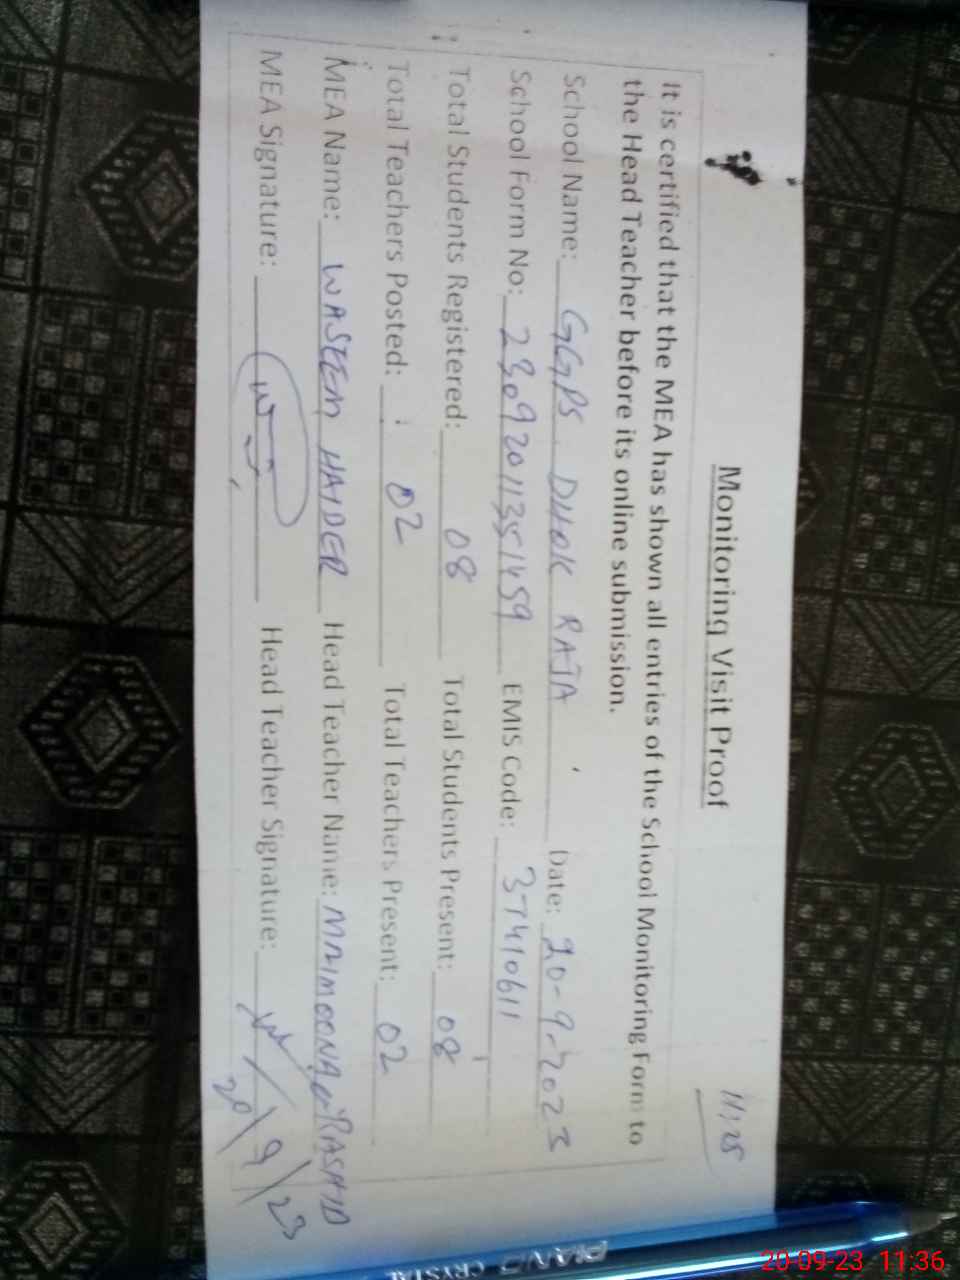 11:25
Monitoring Visit Proof
It is certified that the MEA has shown all entries of the School Monitoring Form to
the Head Teacher before its online submission.
School Name: GGPS DHOK RAJA Date: 20-9-2023
School Form No: 23092011351459 EMIS Code: 37410611
Total Students Registered: 08 Total Students Present: 08
Total Teachers Posted: 02 Total Teachers Present: 02
MEA Name: WASEEM HAIDER Head Teacher Name: RASHID
MEA Signature: Head Teacher Signature:
20/9/23
PIANO CRYSTAL
20-09-23 11:36